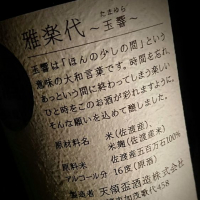 雅楽代
たまゆら
～玉響～
玉響は「ほんの少しの間」という
意味の大和言葉です。時間を忘れ
あっという間に終わってしまう楽しい
ひと時をこのお酒が彩れますように。
そんな願いを込めて醸しました。
原材料名 米(佐渡産)、
米麹(佐渡産米)
原料米 佐渡産五百万石100%
アルコール分 16度(原酒)
製造者 天領盃酒造株式会社
加茂歌代458